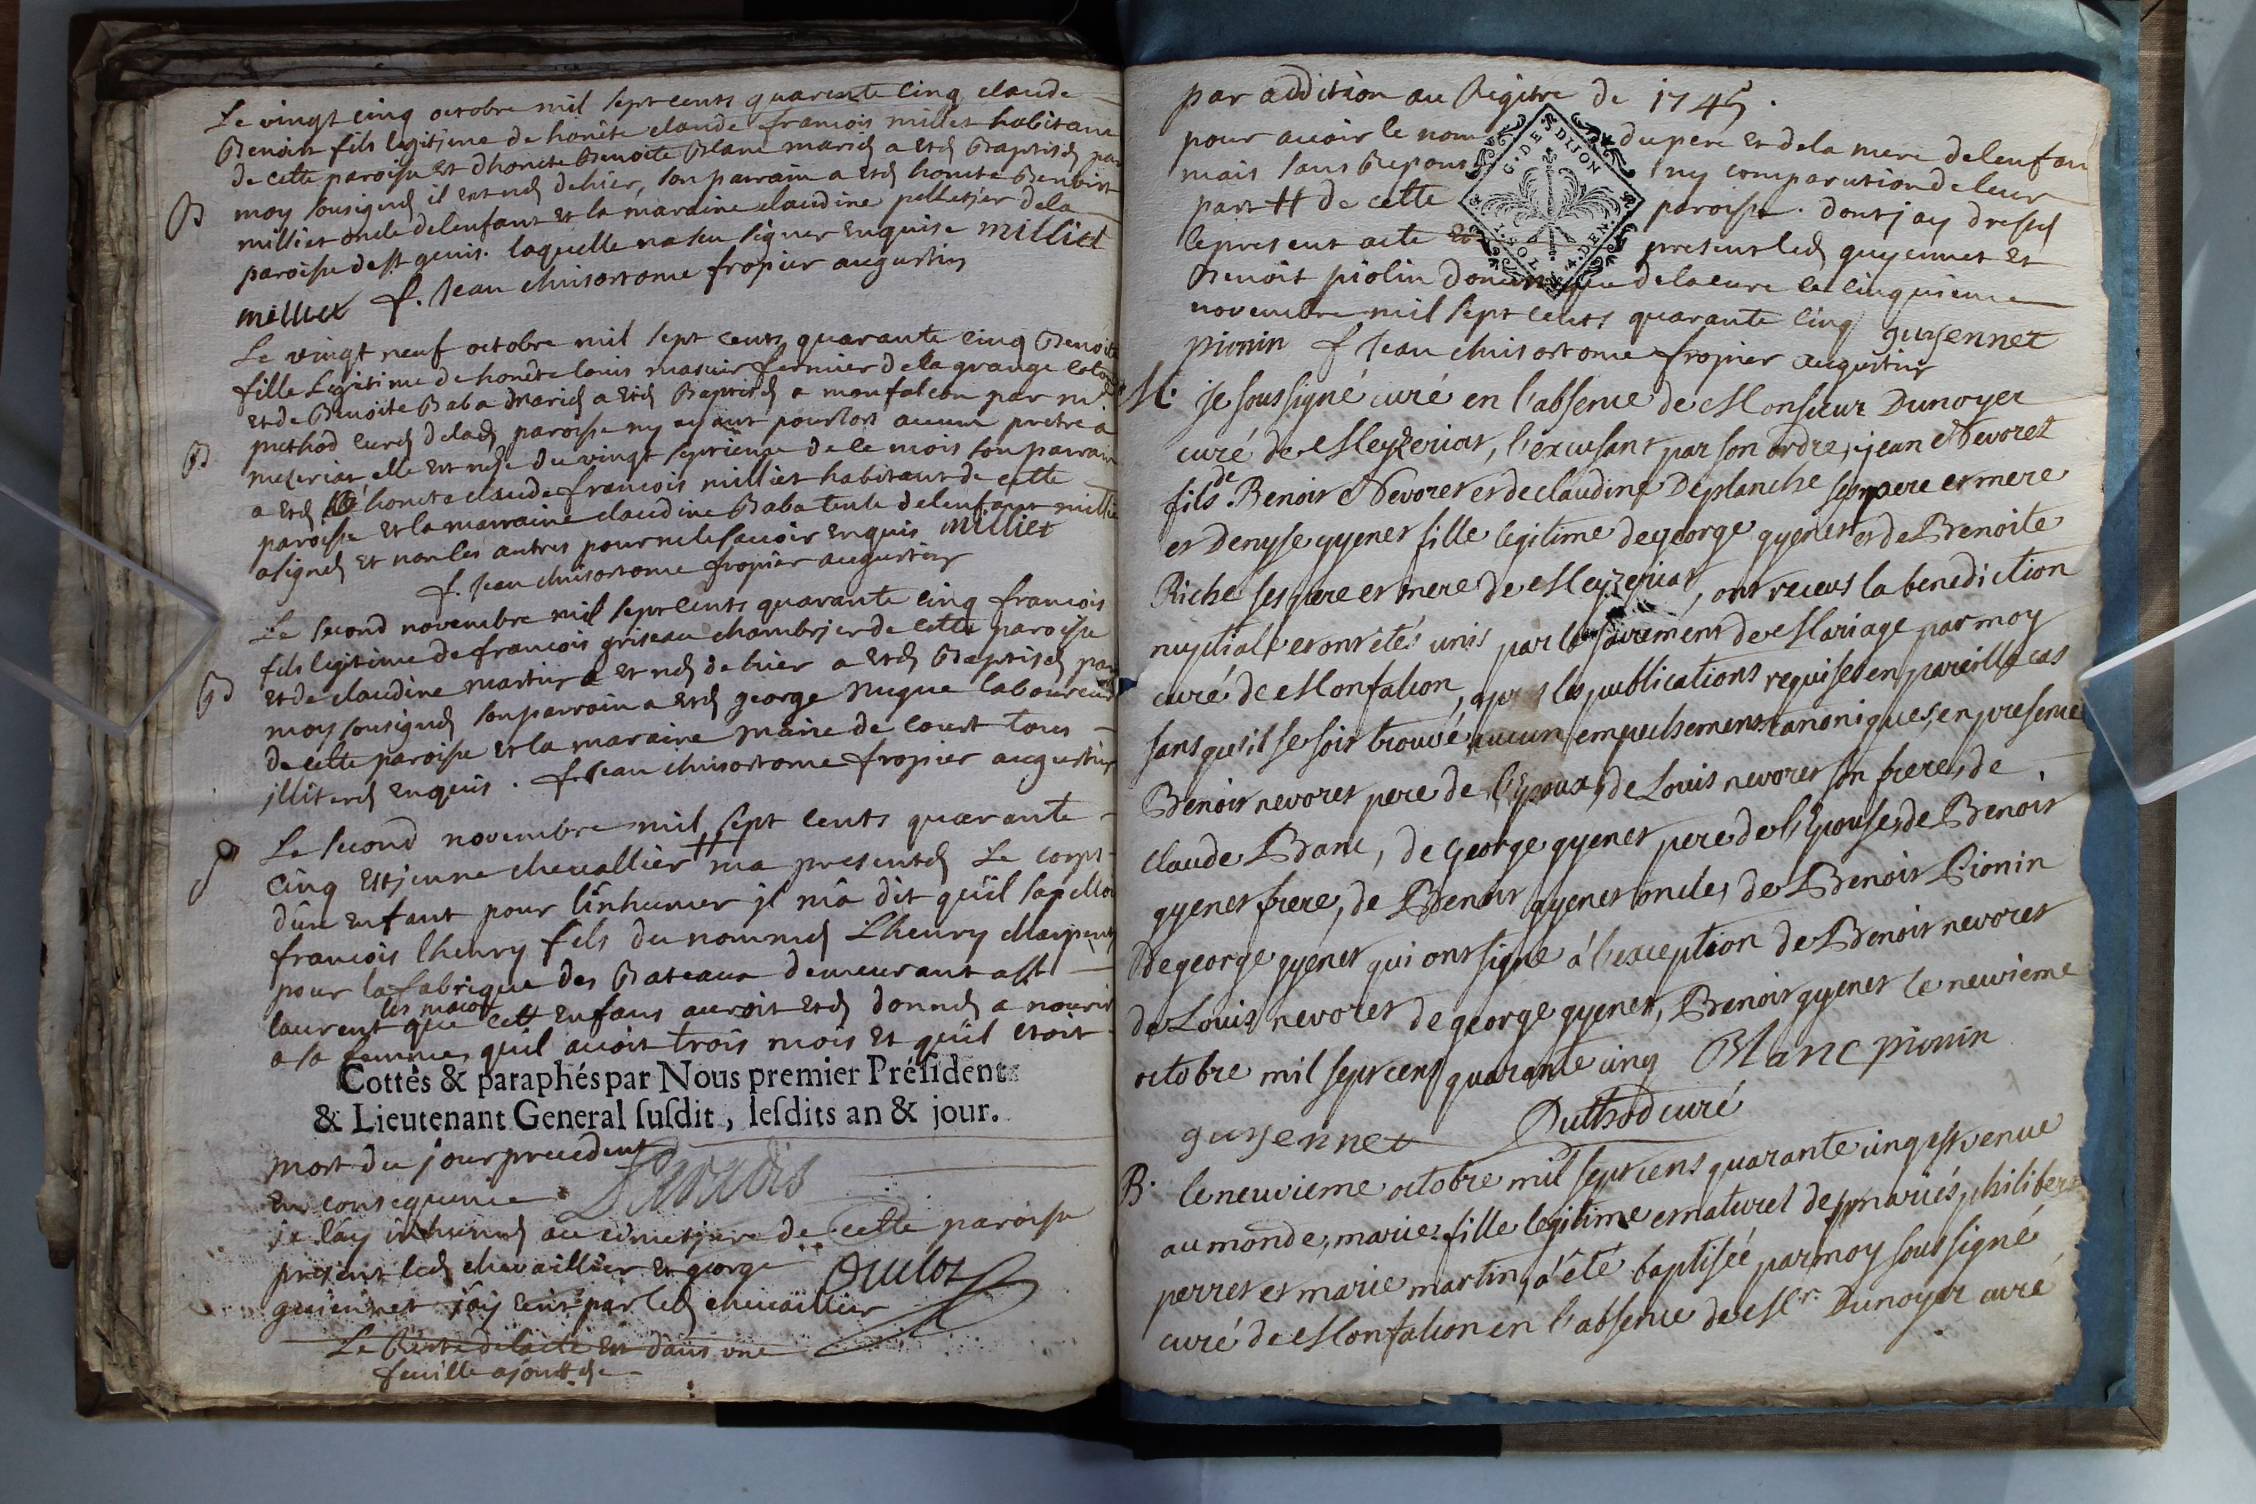 Le vingt cinq octobre mil sept cents quarente cinq claude
Benoit fils legitime de honête claude francois milliet habitant
de cette paroisse et dhonete Benoite Blanc mariés a eté Baptisé par
moy sousigné il est né dehier, son parrain a eté honete Benoist
B
milliet oncle delenfant et la maraine claudine pelletier dela
paroisse de st genis. laquelle na seu signer enquise milliet
milliet f. Jean chrisostome fropier augustin
Le vingt neuf octobre mil sept cents quarante cinq Benoite
fille Legitime de honête louis masuir fermier dela grange
et de Benoite Baba Mariés a eté Baptisée a monfalcon par mr
puthod curé delad paroisse ny ayant pourlors aucun pretre a
B
meseriat, elle est née du vingt septieme de ce mois son parrain
a eté honete claude francois milliet habitant de cette
paroisse et la marraine claudine Baba tente delenfant milliet
a signé et non les autres pour ne le savoir enquis milliet
f. Jean chrisostome fropier augustin
Le second novembre mil sept cents quarante cinq francois
fils legitime de francois griseau chambrier de cette paroisse
et de claudine martin a et né de hier a eté Baptisé par
B
moy sousigné son parrain a eté george Nugue laboureur
de cette paroisse et la maraine marie de court tous
illiterés enquis . f. Jean chrisostome fropier augustin
Le second novembre mil sept cents quarante
cinq Etienne chevallier # ma presenté Le corps
dun enfant pour linhumer il mâ dit quïl sapelloit
francois lhenry fils du nommé Lhenry charpentier
pour la fabrique des Bateaux demeurant a st
les macon
laurent que cett enfans auroit eté donné a nourir
a sa femme, quil avoit trois mois et quïl etoit
Cottés & paraphés par Nous premier Président
& Lieutenant General susdit, lesdits an & jour.
mort du jour precedent
en consequence
je lây inhumé au cimetiere de cette paroisse
present led chevaillier et george
guiennet jây ecrit par led chevaillier
Le Reste delacte est dans une
feuille ajouttée
par addition au Regitre de 1745.
pour avoir le nom du pere et de la mere delenfan
G. DE DIJON
mais sans Reponse ny comparution de leur
part # de cette paroisse. dont jay dressé
le present acte present led guyennet et
Benoit piolin domestique de la cure le cinquieme
novembre mil sept cents quarante cinq guyennet
pionin f Jean chrisostome fropier augustin
M. je soussigné curé en l'absence de Monsieur Dunoyer
curé de Meyzeriat, l'excusant par son ordre, jean Nevoret
fils de Benoit Nevoret et de claudine Deplanche ses pere et mere
et Denyse gyenet fille legitime de george gyenet et de Benoite
Riche ses pere et mere de Meyzeriat, ont receus la benediction
nuptiale et ont étés unis par le sacrement de Mariage par moy
curé de Monfalcon, apres les publications requises en pareille cas
sans qu'il se soit trouvé aucun empechement canoniques, en presence
Benoit nevoret pere de l'Epoux, de Louis nevoret son frere, de
claude Blanc, de george gyenet pere de l'Epouse, de Benoit
gyenet frere, de Benoit gyenet oncle, de Benoit Pionin
de george gyenet qui ont signé à l'exception de Benoit nevoret
de Louis nevoret de george gyenet, Benoit gyenet le neuvieme
octobre mil sept cens quarante cinq Blanc pionin
guyennet Puthod curé
B. le neuvieme octobre mil sept cens quarante cinq est venue
au monde, marie fille legitime et naturel des mariés, philibert
perret et marie martin, a été baptisée par moy soussigné
curé de Monfalcon en l'absence de Mr. Dunoyer curé